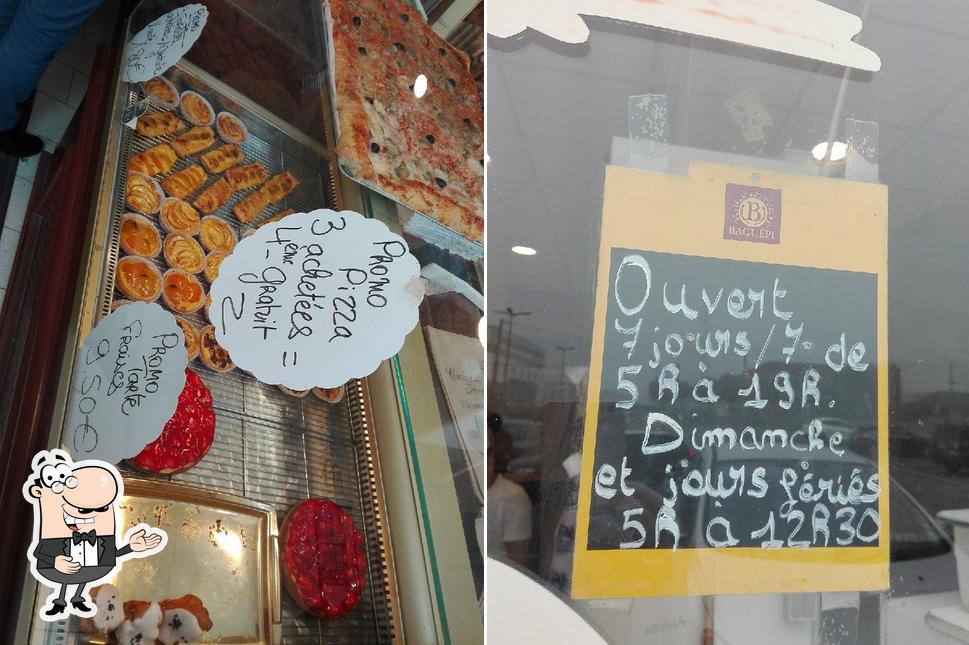 PROMO
Pizza
3 achetées =
4ème gratuit
PROMO
Tarte
FRAISES
9 50€
BAGUÉPI
Ouvert
7 jours/7. de
5h à 19h.
Dimanche
et jours fériés
5h à 12h30